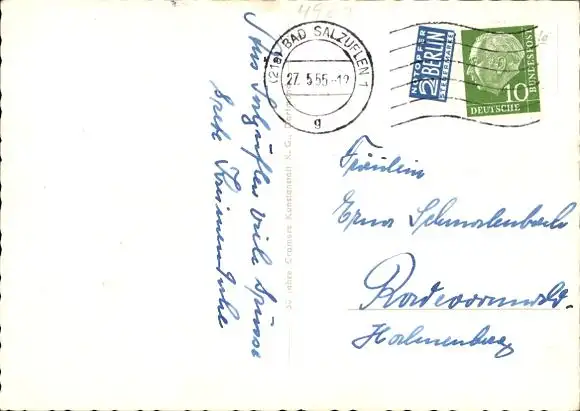 (21a) BAD SALZUFLEN 1
27.5.55-12
g
NOTOPFER
2 BERLIN
STEUERMARKE
10
DEUTSCHE
BUNDESPOST
Aus Salzuflen viele Grüsse
50 Jahre Cramers Kunstanstalt K.G., Dortmund
Fräulein
Erna Schmalenbach
Radevormwald-
Hahnenberg